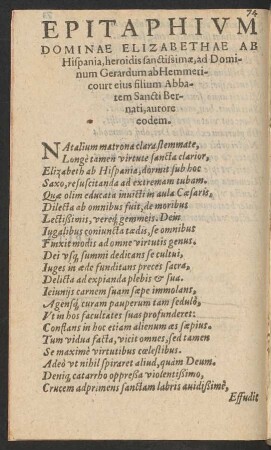 74
EPITAPHIVM
DOMINAE ELIZABETHAE AB
Hispania, heroidis sanctissimæ, ad Domi-
num Gerardum ab Hemmeri-
court eius filium Abba-
tem Sancti Ber-
nati, autore
eodem.
NAtalium matrona clara stemmate,
Longè tamen virtute sancta clarior,
Elizabeth ab Hispania, dormit sub hoc
Saxo, resuscitanda ad extremam tubam.
Quæ olim educata inuicti in aula Cæsaris,
Dilecta ab omnibus fuit, de moribus
Lectissimis, vereq́; gemmeis. Dein
Iugalibus coniuncta tædis, se omnibus
Finxit modis ad omne virtutis genus.
Dei vsq́; summi dedicans se cultui,
Iuges in æde funditans preces sacra,
Delicta ad expianda plebis & sua.
Ieiunijs carnem suam sæpe immolans,
Agensq́; curam pauperum tam sedulò,
Vt in hos facultates suas profunderet:
Constans in hoc etiam alienum æs sæpius.
Tum vidua facta, vicit omnes, sed tamen
Se maximè virtutibus cœlestibus.
Adeò vt nihil spiraret aliud, quàm Deum.
Deniq́; catarrho oppressa violentissimo,
Crucem adprimens sanctam labris auidissimè,
Effudit